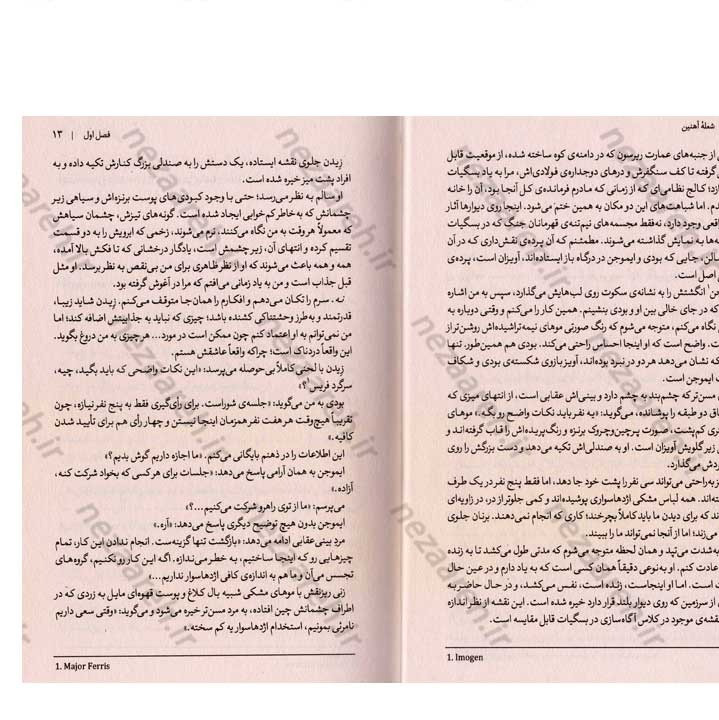 شعلهٔ آهنین
از جنبه‌های عمارت ریرسون که در دامنه‌ی کوه ساخته شده، از موقعیت قابل
گرفته تا کف سنگفرش و درهای دوجداره‌ی فولادی‌اش، مرا به یاد بسگیات
کالج نظامی‌ای که از زمانی که مادرم فرمانده‌ی کل آنجا بود، آن را خانه
اما شباهت‌های این دو مکان به همین ختم می‌شود. اینجا روی دیوارها آثار
وجود دارد، نه‌فقط مجسمه‌های نیم‌تنه‌ی قهرمانان جنگ که در بسگیات
به نمایش گذاشته می‌شوند. مطمئنم که آن پرده‌ی نقش‌داری که در آن
جایی که بودی و ایموجن در درگاه باز ایستاده‌اند، آویزان است، پرده‌ی
اصل است.
انگشتش را به نشانه‌ی سکوت روی لب‌هایش می‌گذارد، سپس به من اشاره
که در جای خالی بین او و بودی بنشینم. همین کار را می‌کنم و وقتی دوباره به
نگاه می‌کنم، متوجه می‌شوم که رنگ صورتی موهای نیمه‌تراشیده‌اش روشن‌تر از
واضح است که او اینجا احساس راحتی می‌کند. بودی هم همین‌طور. تنها
که نشان می‌دهد هر دو در نبرد بوده‌اند، آویز بازوی شکسته‌ی بودی و شکاف
ایموجن است.
مسن‌تر که چشم‌بند به چشم دارد و بینی‌اش عقابی است، از انتهای میزی که
دو طبقه را پوشانده، می‌گوید: «یه نفر باید نکات واضح رو بگه.» موهای
کم‌پشت، صورت پرچین‌وچروک برنزه و رنگ‌پریده‌اش را قاب گرفته‌اند و
زیر گلویش آویزان است. او به صندلی‌اش تکیه می‌دهد و دست بزرگش را روی
می‌گذارد.
به‌راحتی می‌تواند سی نفر را پشت خود جا دهد، اما فقط پنج نفر در یک طرف
همه لباس مشکی اژدهاسواری پوشیده‌اند و کمی جلوتر از در، در زاویه‌ای
که برای دیدن ما باید کاملاً بچرخند؛ کاری که انجام نمی‌دهند. برنان جلوی
می‌زند؛ اما از آنجا نمی‌تواند ما را ببیند.
به‌شدت می‌تپد و همان لحظه متوجه می‌شوم که مدتی طول می‌کشد تا به زنده
عادت کنم. او به‌نوعی دقیقاً همان کسی است که به یاد دارم و در عین حال
است. اما او اینجاست، زنده است، نفس می‌کشد، و در حال حاضر به
از سرزمین که روی دیوار بلند قرار دارد خیره شده است. این نقشه از نظر اندازه
نقشه‌ی موجود در کلاس آگاه‌سازی در بسگیات قابل مقایسه است.
1. Imogen
فصل اول | ۱۳
زیدن جلوی نقشه ایستاده، یک دستش را به صندلی بزرگ کنارش تکیه داده و به
افراد پشت میز خیره شده است.
او سالم به نظر می‌رسد؛ حتی با وجود کبودی‌های پوست برنزه‌اش و سیاهی زیر
چشمانش که به‌خاطر کم‌خوابی ایجاد شده است. گونه‌های تیزش، چشمان سیاهش
که معمولاً هر وقت به من نگاه می‌کنند، نرم می‌شوند، زخمی که ابرویش را به دو قسمت
تقسیم کرده و انتهای آن، زیر چشمش است، یادگار درخشانی که تا فکش بالا آمده،
همه و همه باعث می‌شوند که او از نظر ظاهری برای من بی‌نقص به نظر برسد. او مثل
قبل جذاب است و من به یاد زمانی می‌افتم که مرا در آغوش گرفته بود.
نه. سرم را تکان می‌دهم و افکارم را همان‌جا متوقف می‌کنم. زیدن شاید زیبا،
قدرتمند و به‌طرز وحشتناکی کشنده باشد؛ چیزی که نباید به جذابیتش اضافه کند؛ اما
من نمی‌توانم به او اعتماد کنم چون ممکن است در مورد... هر چیزی به من دروغ بگوید.
این واقعاً دردناک است؛ چراکه واقعاً عاشقش هستم.
زیدن با لحنی کاملاً بی‌حوصله می‌پرسد: «این نکات واضحی که باید بگید، چیه،
سرگرد فریس¹؟»
بودی به من می‌گوید: «جلسه‌ی شوراست. برای رأی‌گیری فقط به پنج نفر نیازه، چون
تقریباً هیچ‌وقت هر هفت نفر همزمان اینجا نیستن و چهار رأی هم برای تأیید شدن
کافیه.»
این اطلاعات را در ذهنم بایگانی می‌کنم. «ما اجازه داریم گوش بدیم؟»
ایموجن به همان آرامی پاسخ می‌دهد: «جلسات برای هر کسی که بخواد شرکت کنه،
آزاده.»
می‌پرسم: «ما از توی راهرو شرکت می‌کنیم...؟»
ایموجن بدون هیچ توضیح دیگری پاسخ می‌دهد: «آره.»
مرد بینی‌عقابی ادامه می‌دهد: «بازگشت تنها گزینه‌ست. انجام ندادن این کار، تمام
چیزهایی رو که اینجا ساختیم، به خطر می‌ندازه. اگه این کار رو نکنیم، گروه‌های
تجسس می‌آن و ما هم به اندازه‌ی کافی اژدهاسوار نداریم...»
زنی ریزنقش با موهای مشکی شبیه بال کلاغ و پوست قهوه‌ای مایل به زردی که در
اطراف چشمانش چین افتاده، به مرد مسن‌تر خیره می‌شود و می‌گوید: «وقتی سعی داریم
نامرئی بمونیم، استخدام اژدهاسوار یه کم سخته.»
1. Major Ferris